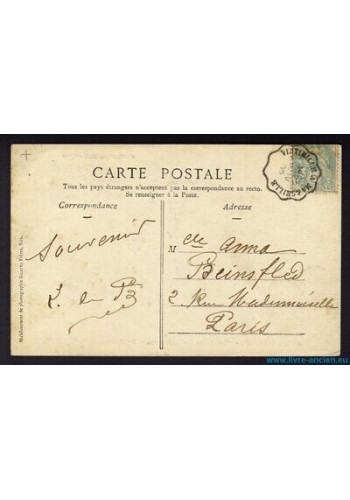 VINTIMILLE À MARSEILLE
CARTE POSTALE
Tous les pays étrangers n'acceptent pas la correspondance au recto.
Se renseigner à la Poste.
Correspondance
Adresse
Souvenir
Melle Anna
Beinsfled
2 Rue Mademoiselle
Paris
Etablissement de photographie
www.livre-ancien.eu